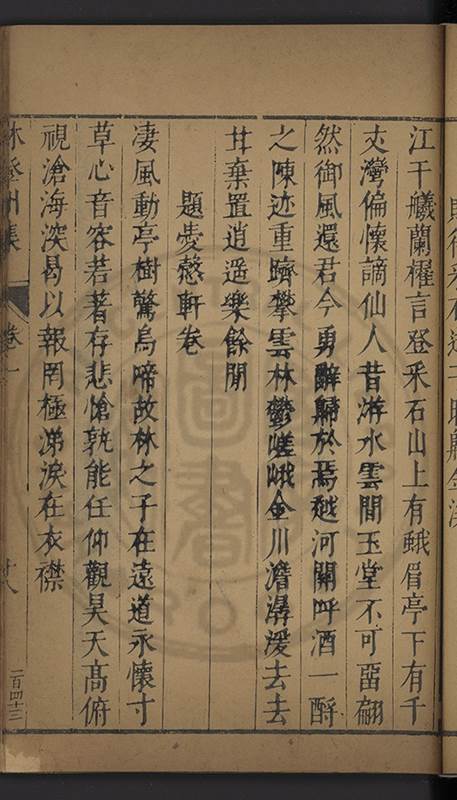 江干艤蘭櫂言登采石山上有蛾眉亭下有千
丈灣偏懷謫仙人昔游水雲間玉堂不可畱翩
然御風還君今勇辭歸於焉越河關呼酒一酹
之陳迹重躋攀雲林鬱嵯峨金川澹潺湲去去
廿棄置逍遥樂餘閒
題憂慤軒卷
凄風動亭樹驚烏啼故林之子在遠道永懷寸
草心音容若著存悲愴孰能任仰觀昊天髙俯
視滄海深曷以報罔極涕淚在衣襟
林登州集
卷一
十八
二百四十三